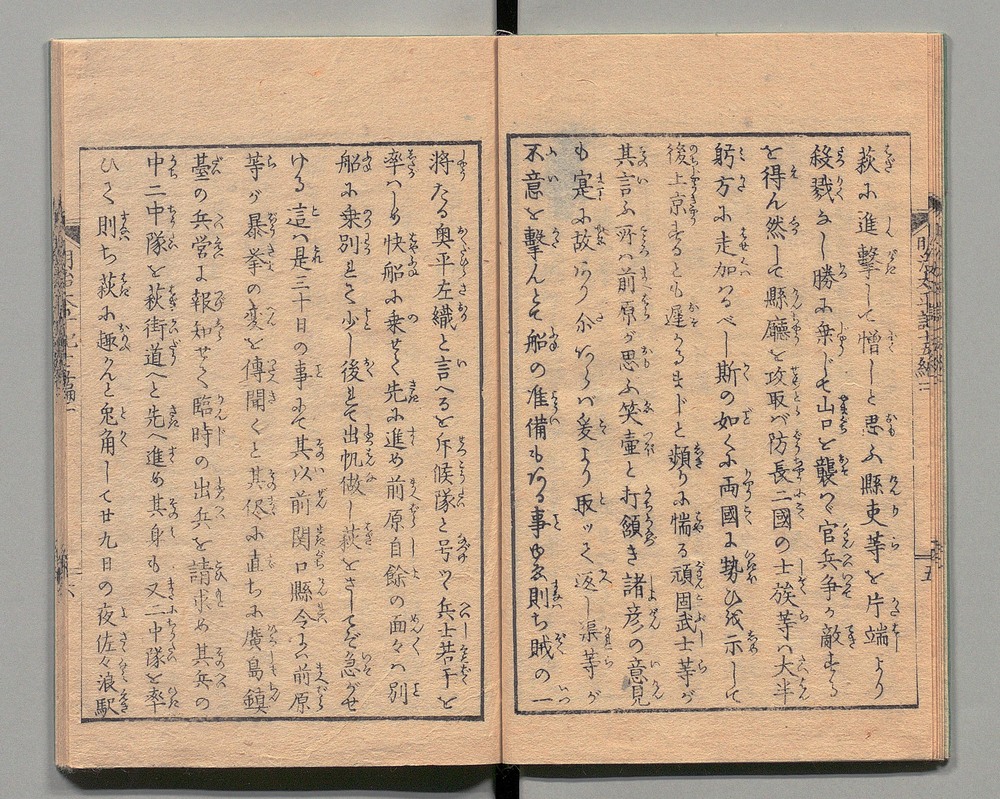 萩に進撃して憎しと思ふ縣吏等を片端より
殺戮なし勝に乗じて山口を襲ひ官兵争か敵する
を得ん然して縣廳を攻取バ防長二國の士族等ハ大半
躬方に走加ハるべし斯の如くに両國に勢ひを示して
後上京するとも遅かるまじと頻りに惴る頑固武士等が
其言ふ所ハ前原が思ふ笑壷と打頷き諸彦の意見
も寔に故あり尓らバ爰より取ッて返し渠等が
不意を撃んとて船の准備もなる事ゆゑ則ち賊の一
将たる奥平左織と言へるを斥候隊と号け兵士若干を
率ハしめ快船に乗せて先に進め前原自餘の面々ハ別
船に乗別れて少し後れて出帆做し萩をさしてぞ急がせ
ける這ハ是三十日の事にて其以前関口縣令ハ前原
等が暴挙の変を傳聞くと其侭に直ちに廣島鎮
臺の兵営に報知せて臨時の出兵を請求め其兵の
中二中隊を萩街道へと先へ進め其身も又二中隊を率
ひて則ち萩に趣かんと兎角して廿九日の夜佐々浪駅
五